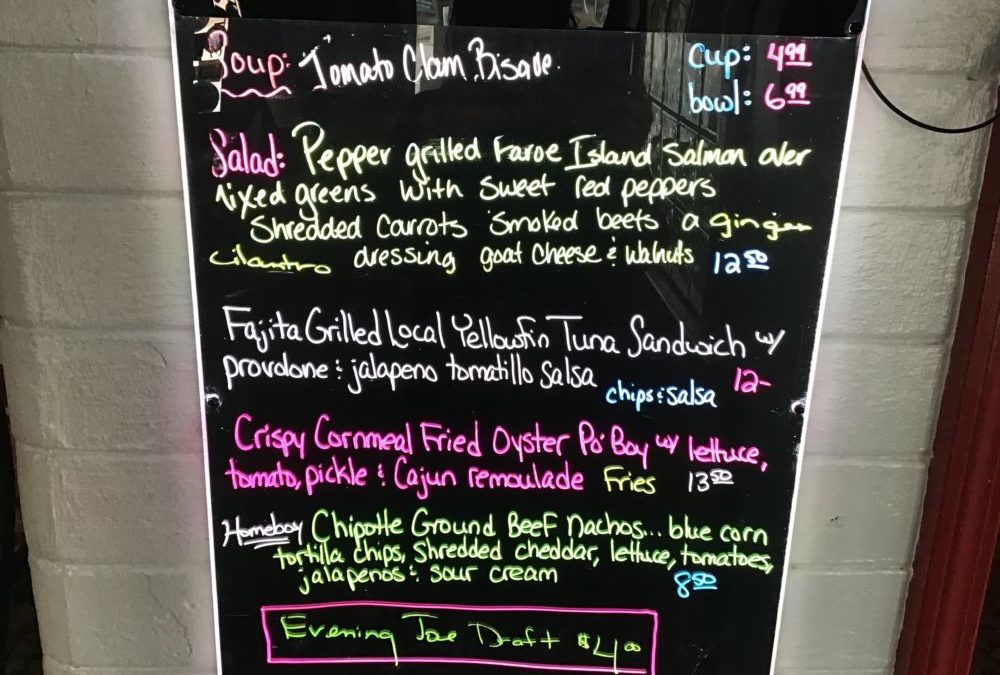 Soup: Tomato Clam Bisque. Cup: 4.99
bowl: 6.99
Salad: Pepper grilled Faroe Island Salmon over
mixed greens with sweet red peppers
Shredded Carrots Smoked beets a ginger
cilantro dressing goat cheese & walnuts 12.50
Fajita Grilled Local Yellowfin Tuna Sandwich w/
provolone & jalapeno tomatillo Salsa 12-
chips & Salsa
Crispy Cornmeal Fried Oyster Po' Boy w/ lettuce,
tomato, pickle & Cajun remoulade Fries 13.50
Homeboy Chipotle Ground Beef Nachos... blue corn
tortilla chips, Shredded cheddar, lettuce, tomatoes,
jalapenos & sour cream 8.50
Evening Joe Draft $4.00